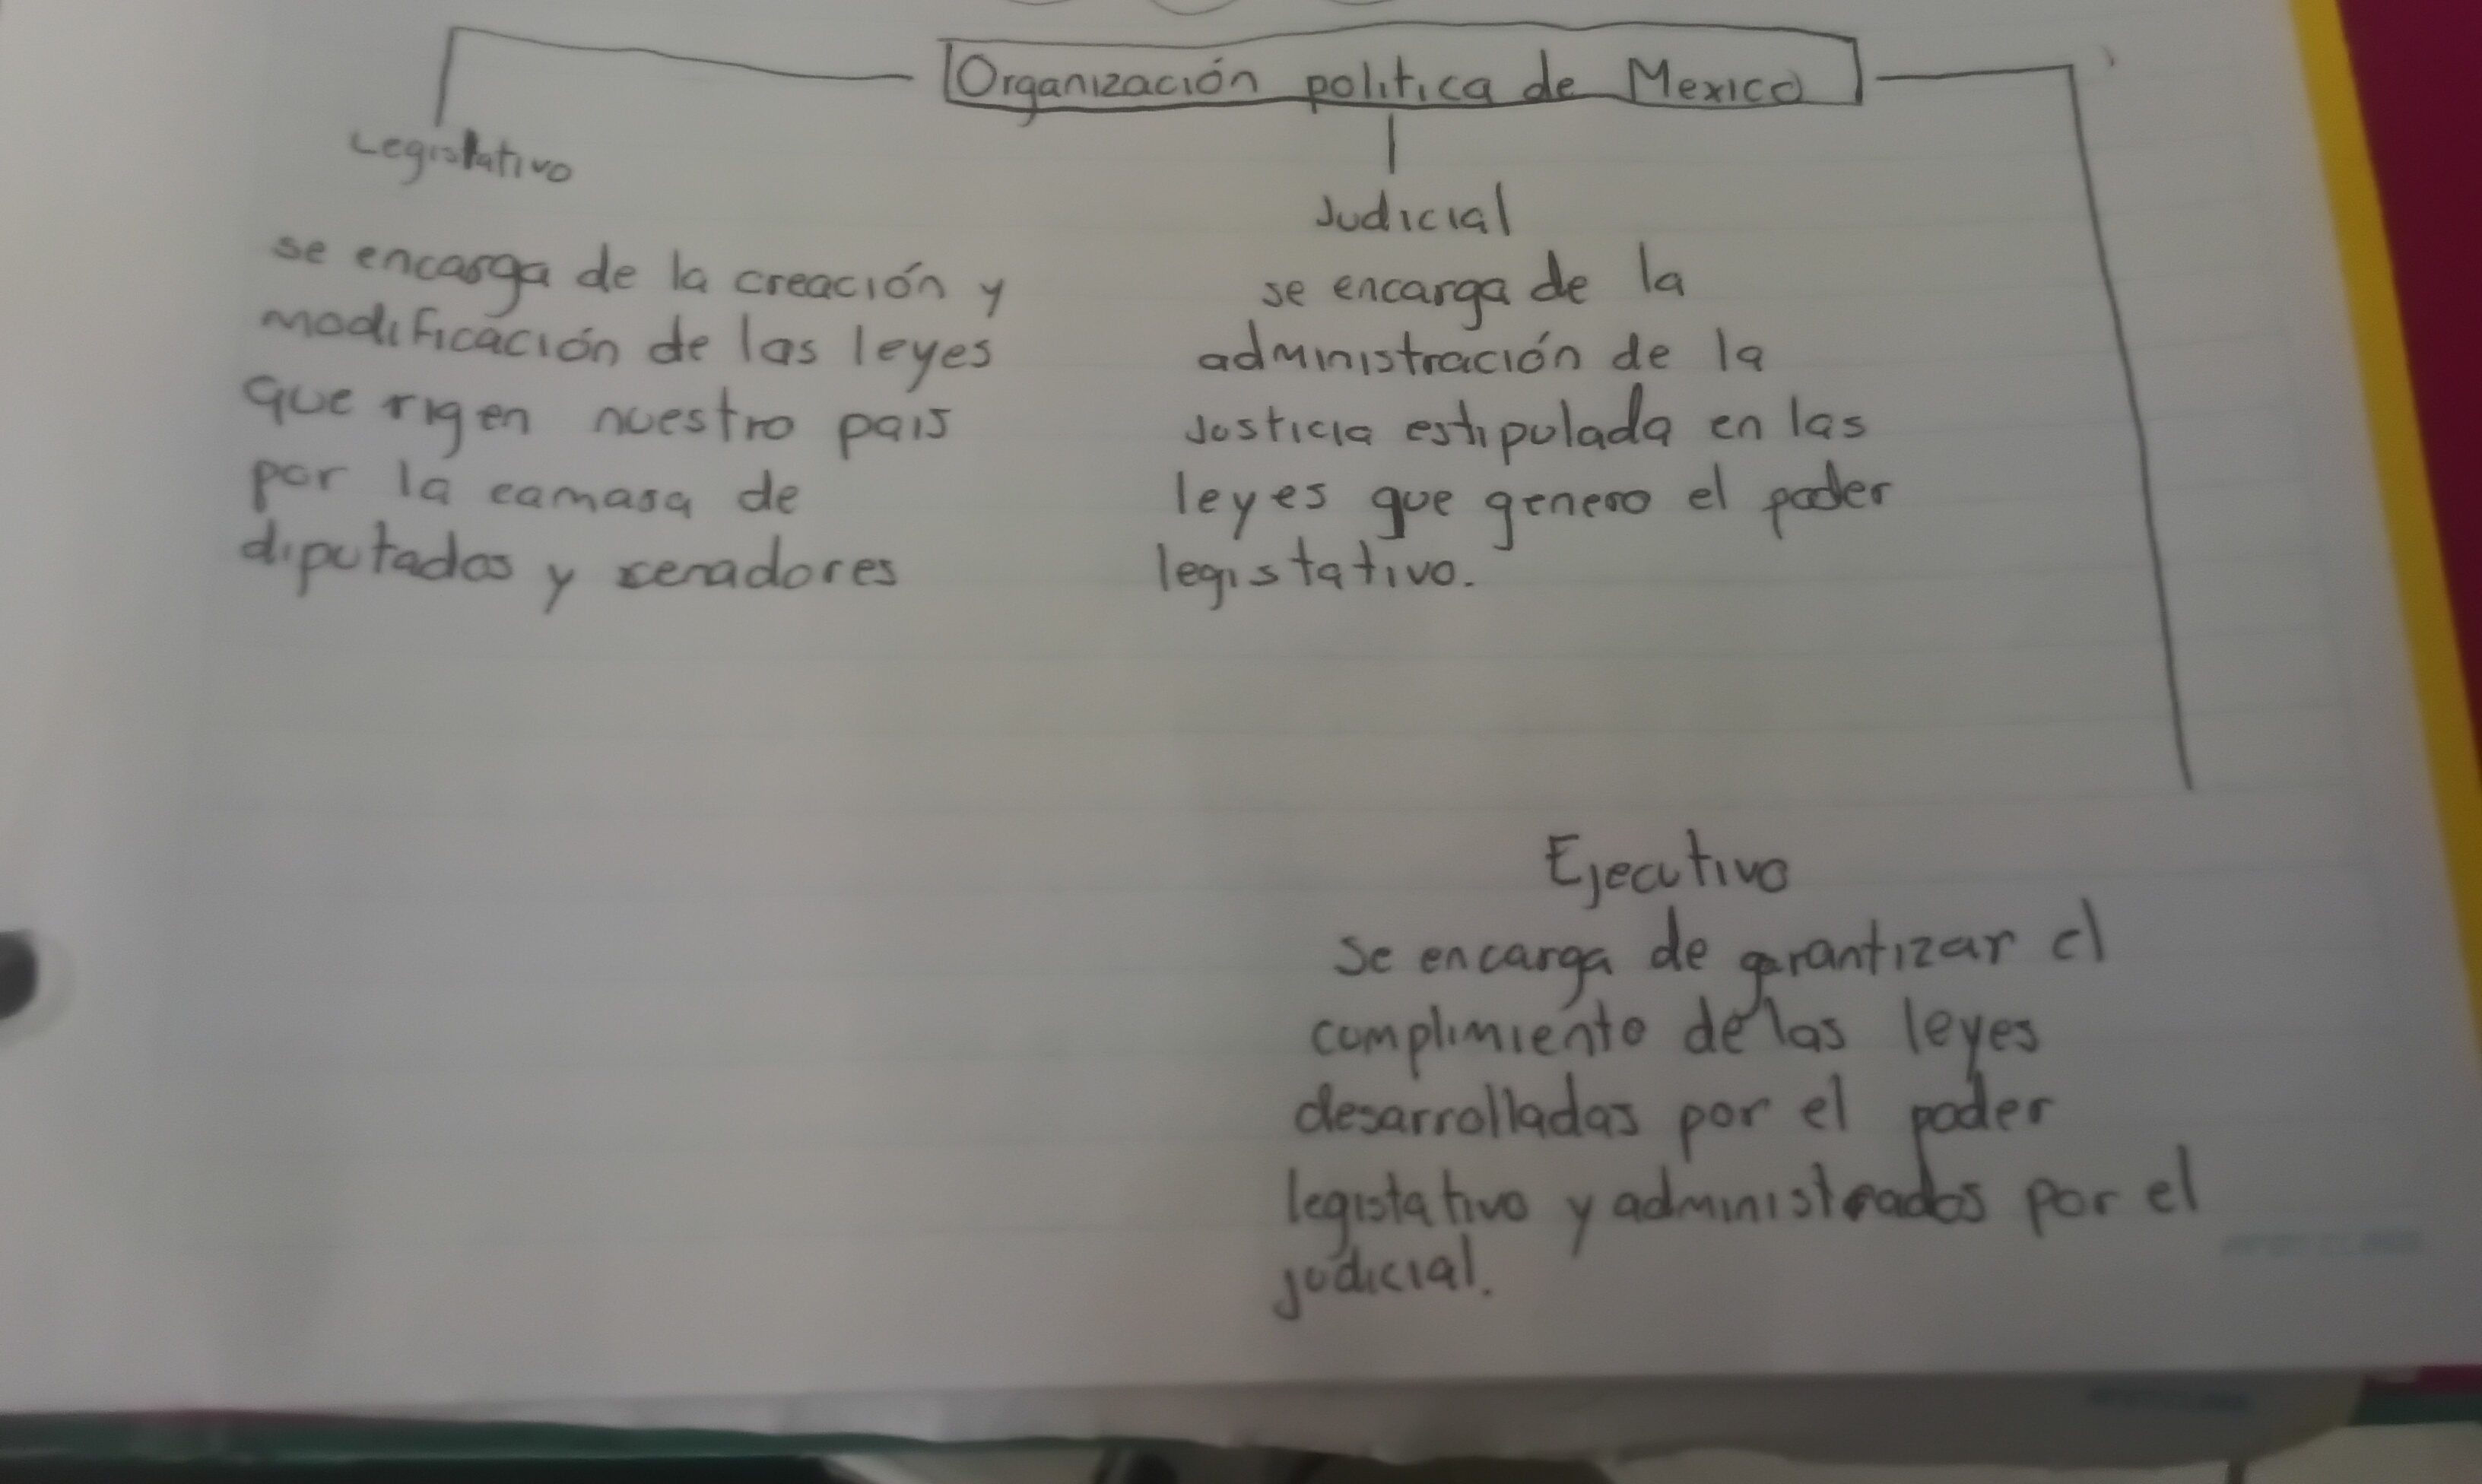 Organización politica de Mexico
Legislativo
se encarga de la creación y
modificación de las leyes
que rigen nuestro pais
por la camasa de
diputados y senadores
Judicial
se encarga de la
administración de la
Justicia estipulada en las
leyes que genero el poder
legistativo.
Ejecutivo
Se encarga de garantizar el
complimiento de las leyes
desarrolladas por el poder
legistativo y administrados por el
judicial.